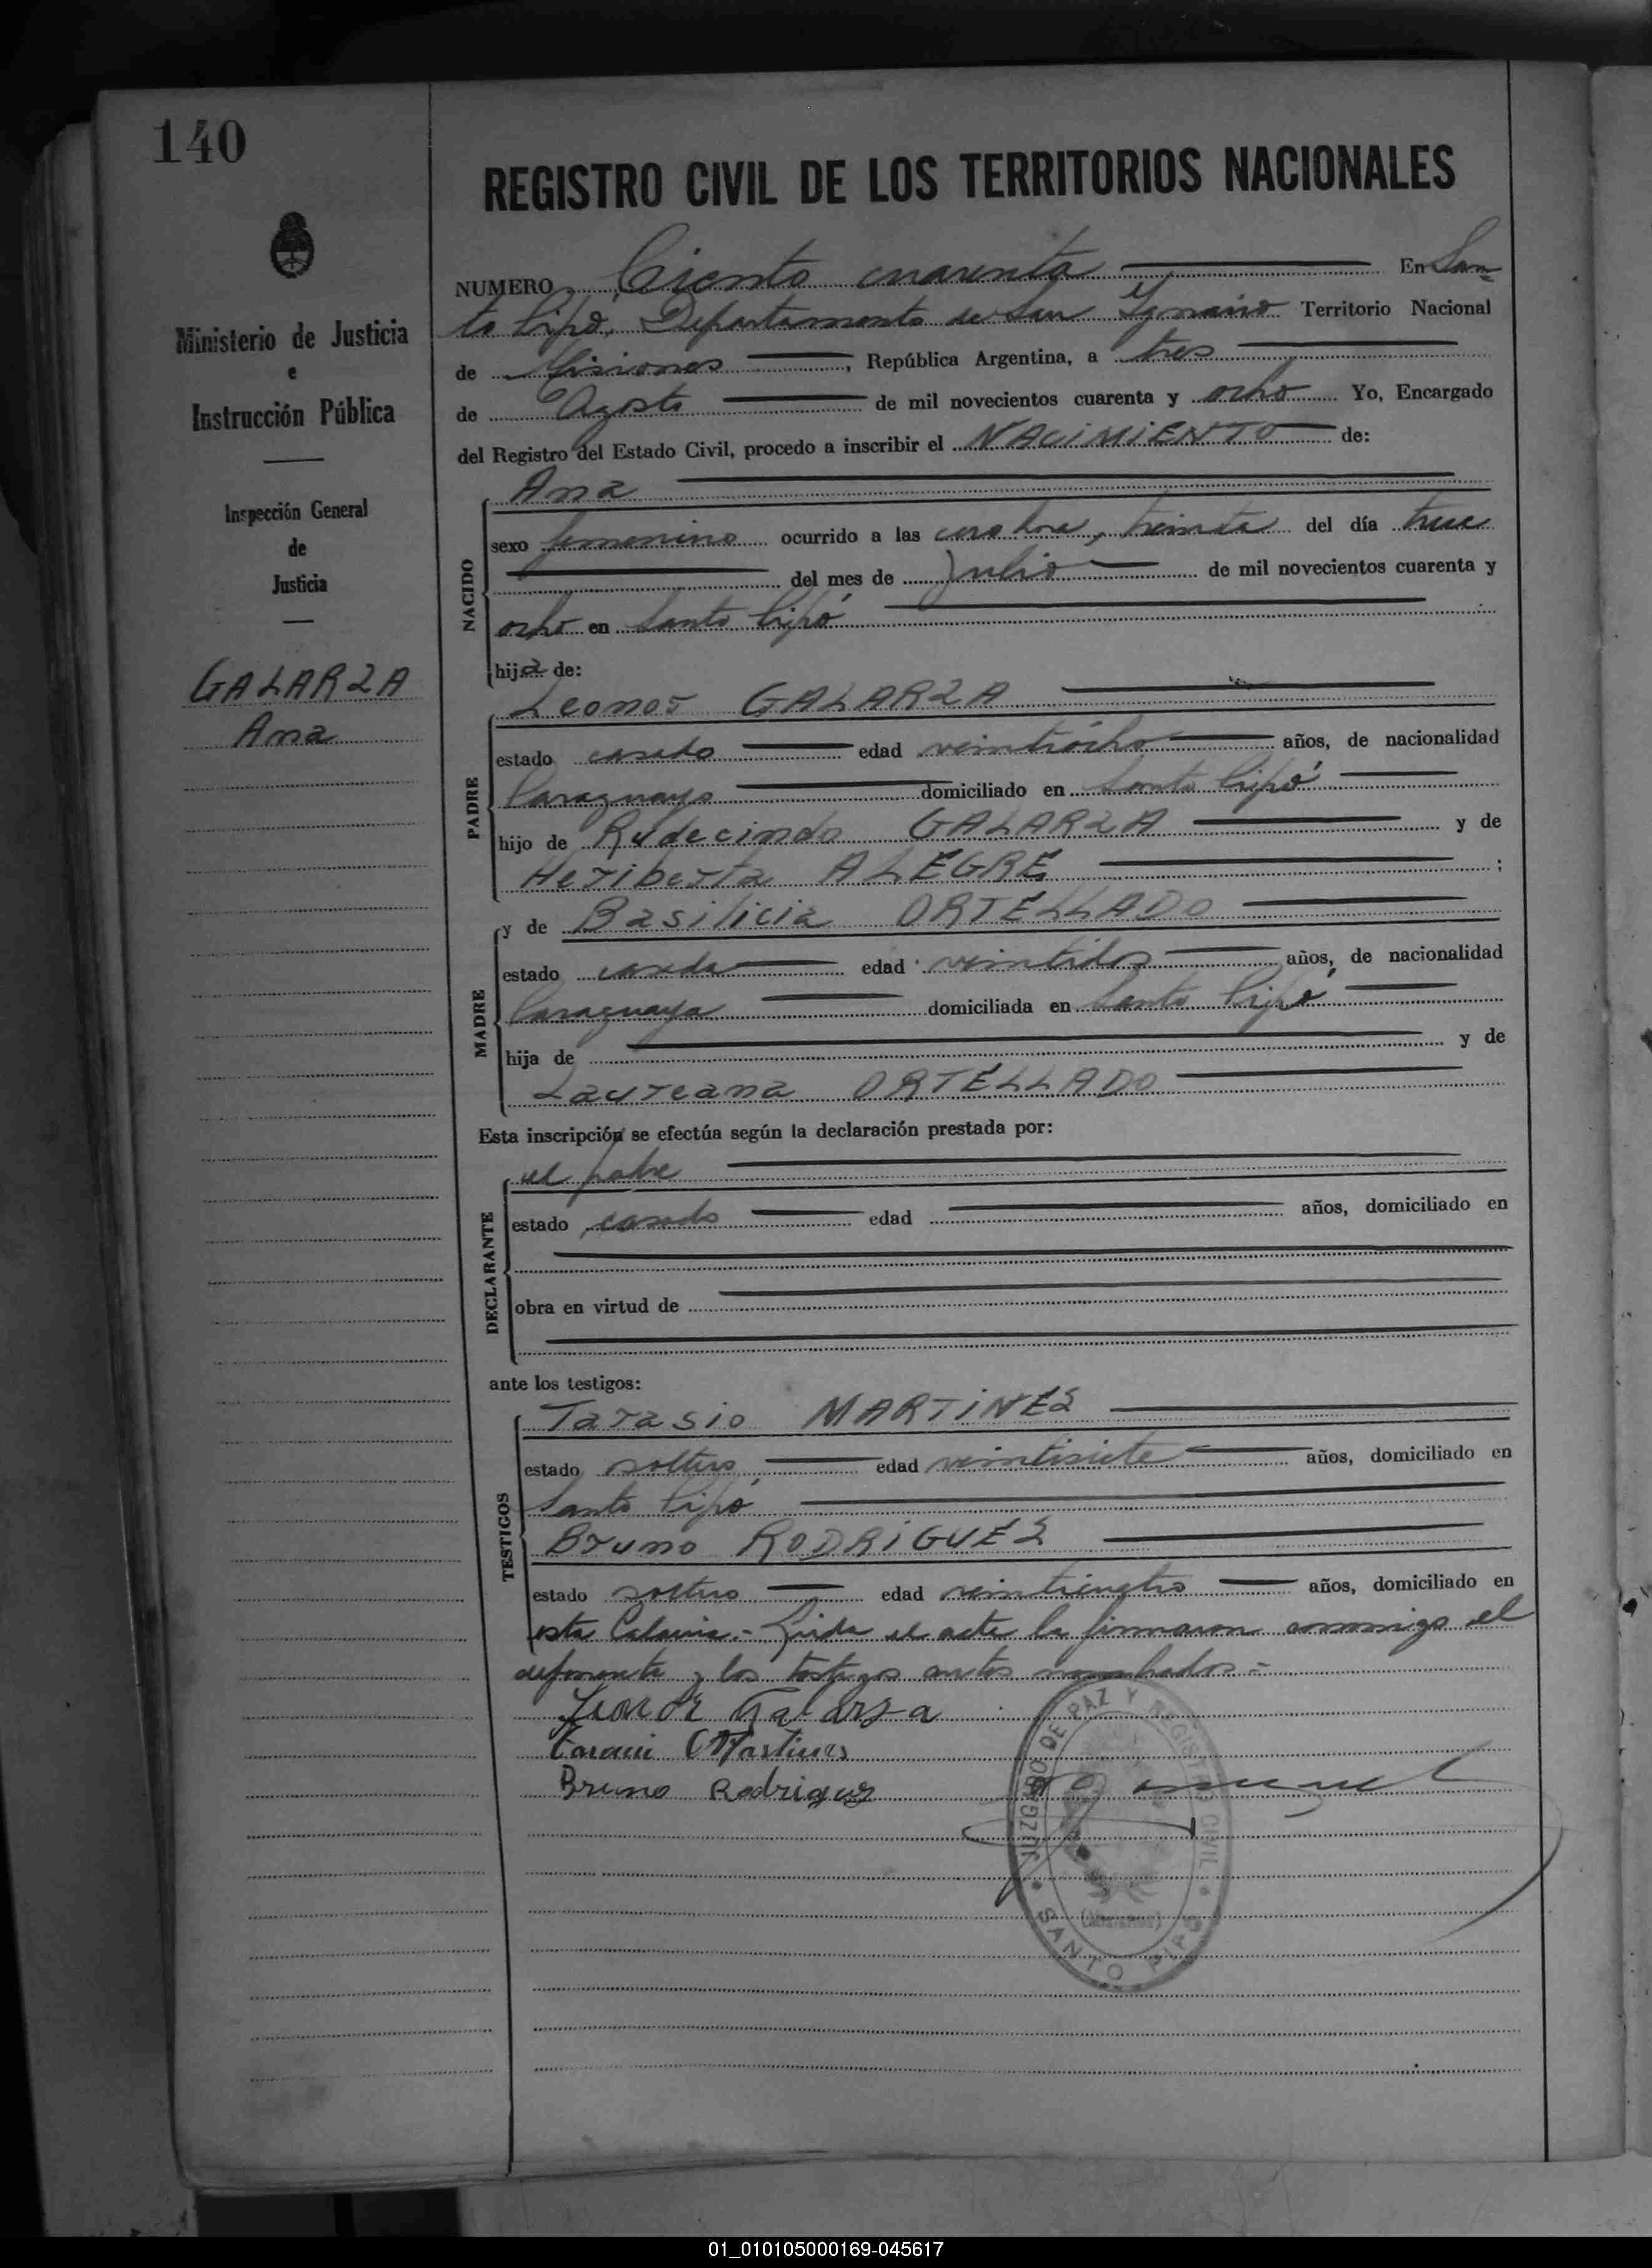 140
Ministerio de Justicia
e
Instrucción Pública
Inspección General
de
Justicia
GALARZA
Ana
REGISTRO CIVIL DE LOS TERRITORIOS NACIONALES
NUMERO Ciento cuarenta En San-
to Pipó, Departamento de San Ygnacio Territorio Nacional
de Misiones, República Argentina, a tres
de Agosto de mil novecientos cuarenta y ocho Yo, Encargado
del Registro del Estado Civil, procedo a inscribir el NACIMIENTO de:
NACIDO
Ana
sexo femenino ocurrido a las cero hora, treinta del día trece
del mes de Julio de mil novecientos cuarenta y
ocho en Santo Pipó
hija de:
PADRE
Leonor GALARZA
estado casado edad veintiocho años, de nacionalidad
Paraguayo domiciliado en Santo Pipó
hijo de Rudecindo GALARZA y de
Heriberta ALEGRE ;
MADRE
y de Basilicia ORTELLADO
estado casada edad veintidos años, de nacionalidad
Paraguaya domiciliada en Santo Pipó
hija de y de
Laureana ORTELLADO
Esta inscripción se efectúa según la declaración prestada por:
DECLARANTE
el padre
estado casado edad años, domiciliado en
obra en virtud de
ante los testigos:
TESTIGOS
Tarasio MARTINEZ
estado soltero, edad veintisiete años, domiciliado en
Santo Pipó
Bruno RODRIGUEZ
estado soltero edad veinticuatro años, domiciliado en
esta Colonia.- Leida el acta la firmaron conmigo el
deponente y los testigos antes nombrados.=
Leonor Galarza
Martines
Bruno Rodriguez
JUZGADO DE PAZ Y REGISTRO CIVIL
(Misiones)
SANTO PIPÓ
01_010105000169-045617